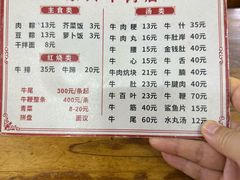 主食类
肉粽 13元 芥菜饭 3元
豆粽 13元 萝卜饭 3元
干拌面 8元
红烧类
牛排 35元 牛蹄 20元
牛尾 300元/条起
牛鞭整条 400元/条
青菜 8-20元
拼盘 面议
汤类
牛肉粳 13元 牛什 35元
牛肉丸 15元 牛肚岸 40元
牛腰 12元 金钱肚 40元
牛心 15元 牛舌 40元
牛肉炕块 21元 牛腩 40元
牛肚 21元 牛腱 40元
牛百叶 23元 牛鞭 70元
牛筋 40元 鲨鱼片 15元
牛尾 60元 水丸汤 12元